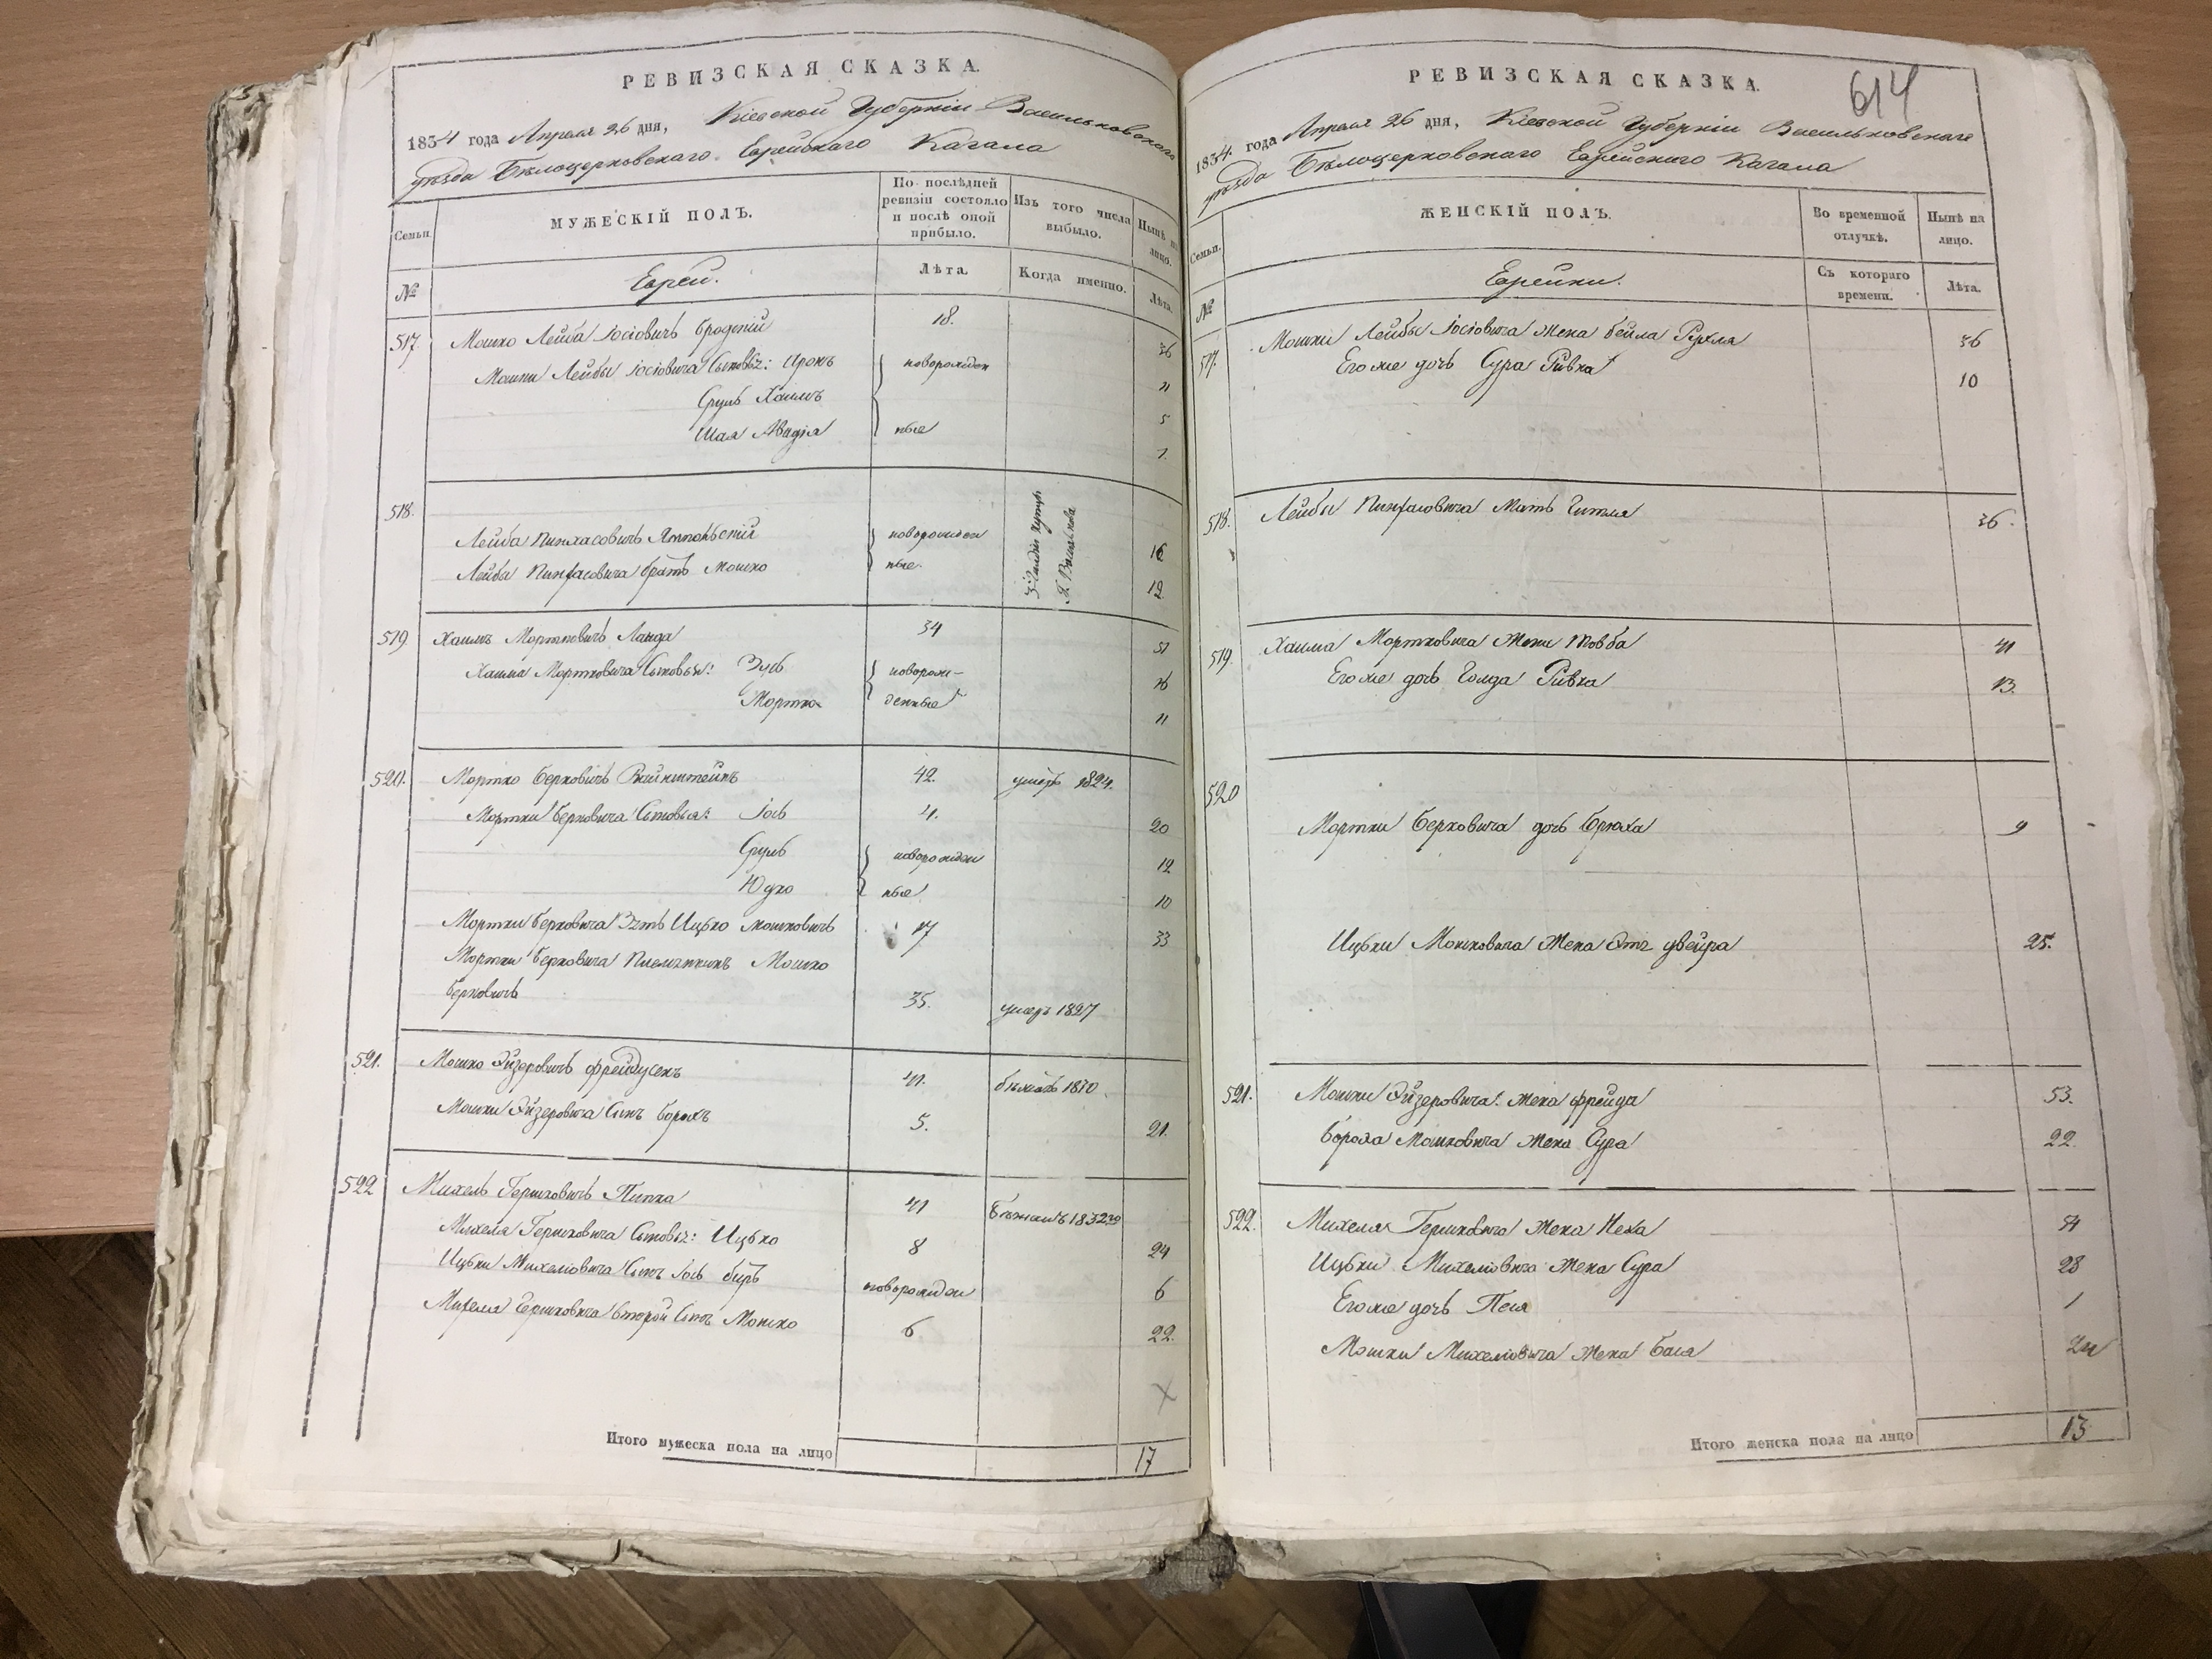 РЕВИЗСКАЯ СКАЗКА.
1834 года Апреля 26 дня, Кіевской Губерніи Васильковскаго
уезда Бѣлоцерковскаго Еврейскаго Кагала
Семьи.
МУЖЕСКІЙ ПОЛЪ.
По послѣдней ревизіи состояло и послѣ оной прибыло.
Изъ того числа выбыло.
Нынѣ на лицо.
№
Евреи.
Лѣта.
Когда именно.
Лѣта.
517. Мошко Лейба Іосіовичъ 18. 36
Мошки Лейбы Іосіовича Сыновья: Аронъ новорожден 11
Сруль Хаимъ 5
Шая Авадія ные 1
518.
Лейба Пинхасовичъ новорожден 16
Лейбы Пинхасовича братъ Мошко ные. 12
519 Хаимъ Мортковичъ Ланда 34 51
Хаима Мортковича Сыновья: Зусь новорож- 16
Мортко денные 11
520. Мортко Берковичъ Вайнштейнъ 42. умеръ 1824.
Мортки Берковича Сыновья: Іось 4. 20
Сруль новорожден 12
Юдко ные 10
Мортки Берковича Зять Ицько Мошковичъ 17 33
Мортки Берковича Племянникъ Мошко
Берковичъ 35. умеръ 1827
521. Мошко Эйзеровичъ 41.
Мошки Эйзеровича Сынъ Борохъ 5. 21.
522 Михель Гершковичъ Пипка 41
Михеля Гершковича Сыновья: Ицько 8 24
Ицьки Михеліовича Сынъ Іось новорожден 6
Михеля Гершковича второй Сынъ Мошко 6 22.
Итого мужеска пола на лицо 17
РЕВИЗСКАЯ СКАЗКА.
614
1834 года Апреля 26 дня, Кіевской Губерніи Васильковскаго
уезда Бѣлоцерковскаго Еврейскаго Кагала
Семьи.
ЖЕНСКІЙ ПОЛЪ.
Во временной отлучкѣ.
Нынѣ на лицо.
№
Еврейки.
Съ котораго времени.
Лѣта.
517. Мошки Лейбы Іосіовича жена Бейла Рухля 36
Его же дочь Сура Ривка 10
518. Лейбы Пинхасовича Мать Гитля 36.
519. Хаима Мортковича Жена Товба 41
Его же дочь Голда Ривка 13.
520
Мортки Берковича дочь Брюха 9
Ицьки Мошковича Жена Двейра 25.
521. Мошки Эйзеровича жена Фрейда 53.
Бороха Мошковича жена Сура 22.
522. Михеля Гершковича жена Неха 54
Ицьки Михеліовича жена Сура 28
Его же дочь Песя 1
Мошки Михеліовича жена Бася
Итого женска пола на лицо 13